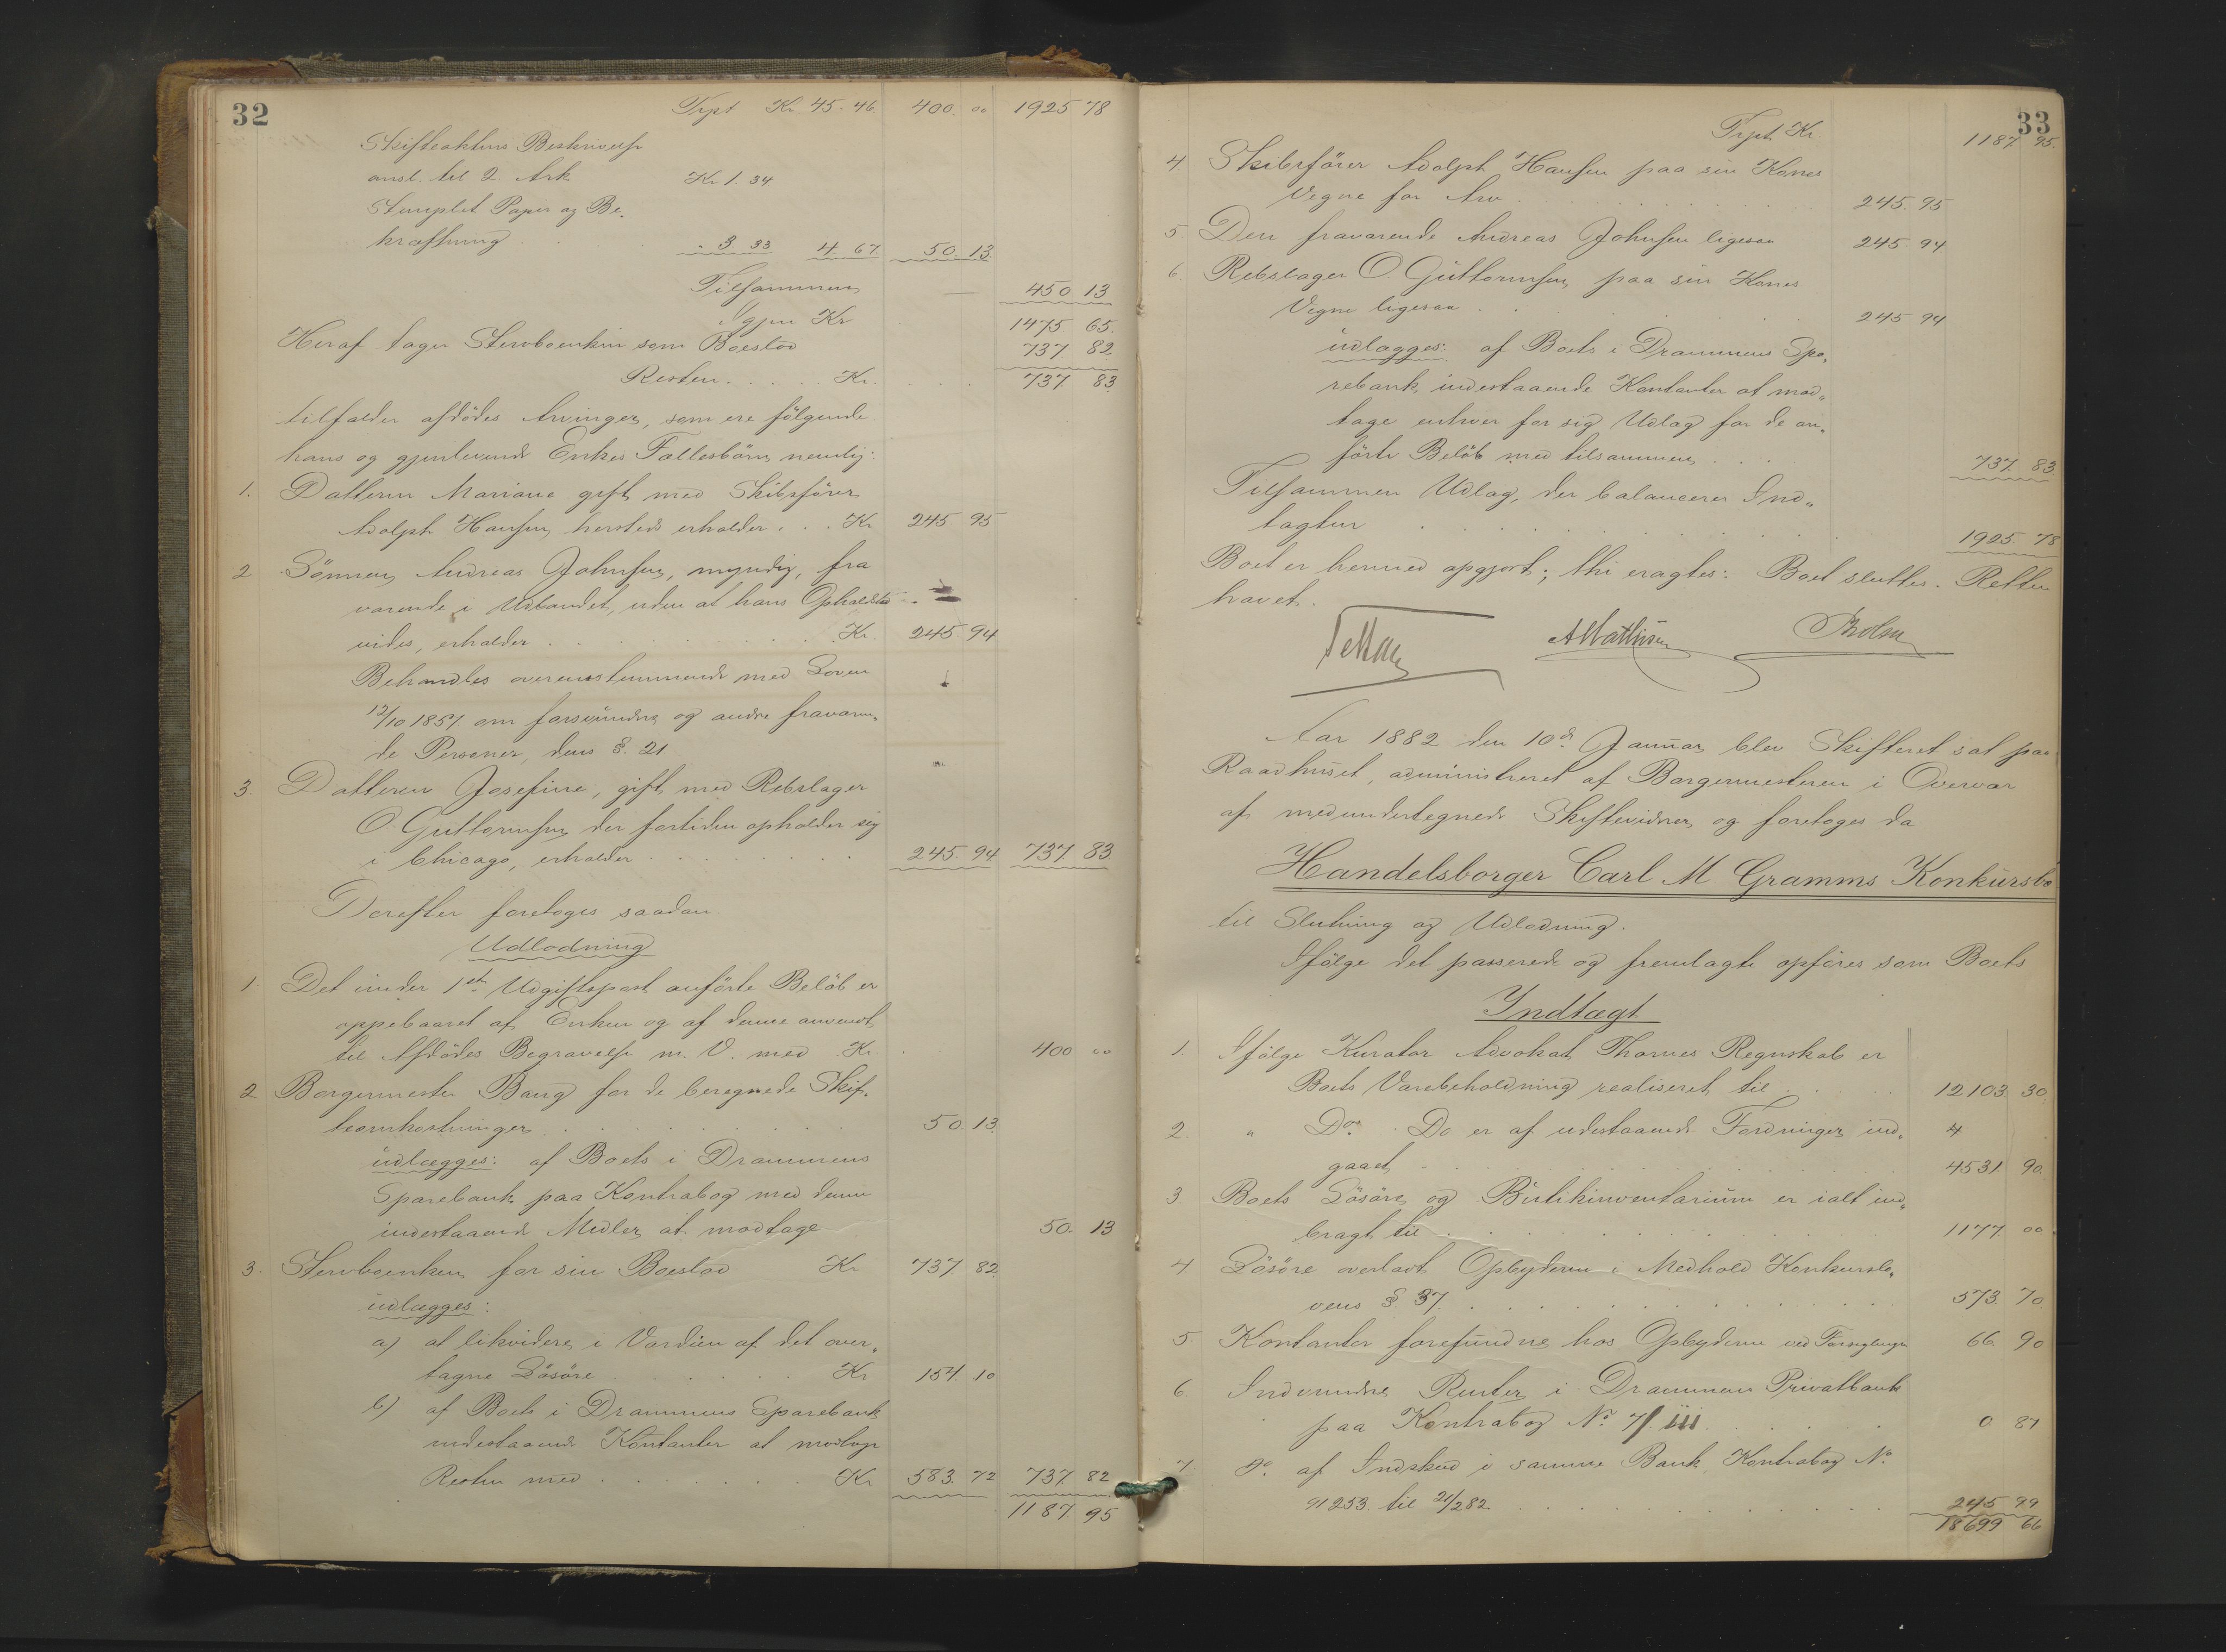 32
Trpt Kr. 45. 46. 400. 00 1925 78
Skifteaktens Beskrivelse
ansl. til 2. Ark Kr 1. 34
Stemplet Papir og Be-
kræftning . . . 3. 33 4. 67 50. 13.
Tilsammen — 450. 13
Igjen Kr 1475. 65.
Heraf tager Stervboenken som Boeslod 737 82
Resten . . . . . Kr. . . . 737 83
tilfalder afdødes Arvinger, som ere følgende
hans og gjenlevende Enkes Fællesbørn, nemlig:
1. Datteren Mariane gift med Skibsfører
Adolph Hansen, hersteds erholder . . . Kr 245 95
2 Sønnen Andreas Johnsen, myndig, fra
værende i Udlandet, uden at hans Opholdssted
vides, erholder . . . . . . Kr. 245. 94
Behandles overensstemmende med Loven
12/10 1857. om forsvundne og andre fraværen-
de Personer, dens §. 21
3. Datteren Josefine, gift med Rebslager
O. Guttormsen, der fortiden opholder sig
i Chicago, erholder . . . . . . 245. 94 737. 83
Derefter foretoges saadan
Udlodning
1. Det under 1st Udgiftspost anførte Beløb er
oppebaaret af Enken og af denne anvendt
til Afdødes Begravelse m. V. med Kr. . 400 00
2 Borgermester Bang for de beregnede Skif-
teomkostninger . . . . . . 50. 13.
udlægges: af Boets i Drammens
Sparebank paa Kontrabog med denne
indestaaende Midler at modtage 50. 13
3. Stervboenken for sin Boeslod Kr 737 82
udlægges:
a) at likvidere i Værdien af det over-
tagne Løsøre . . . . . Kr 154. 10
b) af Boets i Drammens Sparebank
indestaaende Kontanter at modtage
Resten med . . . . . . Kr 583. 72 737. 82
1187. 95
33
Trpt. Kr. 1187 95.
4. Skibsfører Adolph Hansen paa sin Kones
Vegne for Arv . . . . . . 245. 95
5 Den fraværende Andreas Johnsen ligesaa 245. 94
6. Rebslager O. Guttormsen, paa sin Kones
Vegne ligesaa . . . . . . 245 94
udlægges: af Boets i Drammens Spa-
rebank indestaaende Kontanter at mod-
tage enhver for sig Udlæg for de an-
førte Beløb med tilsammen . . . 737. 83
Tilsammen Udlæg, der balancerer Ind-
tægten . . . . . . 1925. 78
Boet er hermed opgjort; thi eragtes: Boet sluttes. Retten
hævet.
AMathisen
Aar 1882 den 10de Januar blev Skifteret sat paa
Raadhuset, administreret af Borgermesteren i Overvær
af medundertegnede Skiftevidner, og foretoges da
Handelsborger Carl M Gramms Konkursbo
til Slutning og Udlodning.
Ifølge det passerede og fremlagte opføres som Boets
Indtægt
1. Ifølge Kurator Advokat Thornes Regnskab er
Boets Varebeholdning realiseret til . . . 12103. 30.
2. " Do. Do er af udestaaende Fordringer ind- 4
gaaet . . . . . . 4531. 90.
3 Boets Løsøre og Butikinventarium er ialt ind-
bragt til . . . . . . 1177. 00
4 Løsøre overladt Opbyderen i Medhold Konkurslo-
vens §. 37. . . . . . . 573. 70
5. Kontanter forefundne hos Opbyderen ved Forseglingen 66. 90
6. Indvundne Renter i Drammens Privatbank
paa Kontrabog No . . . . . 0 87
7. do. af Indskud i samme Bank, Kontrabog No
91253. til 21/2 82 . . . . . . 245 99
18699 66